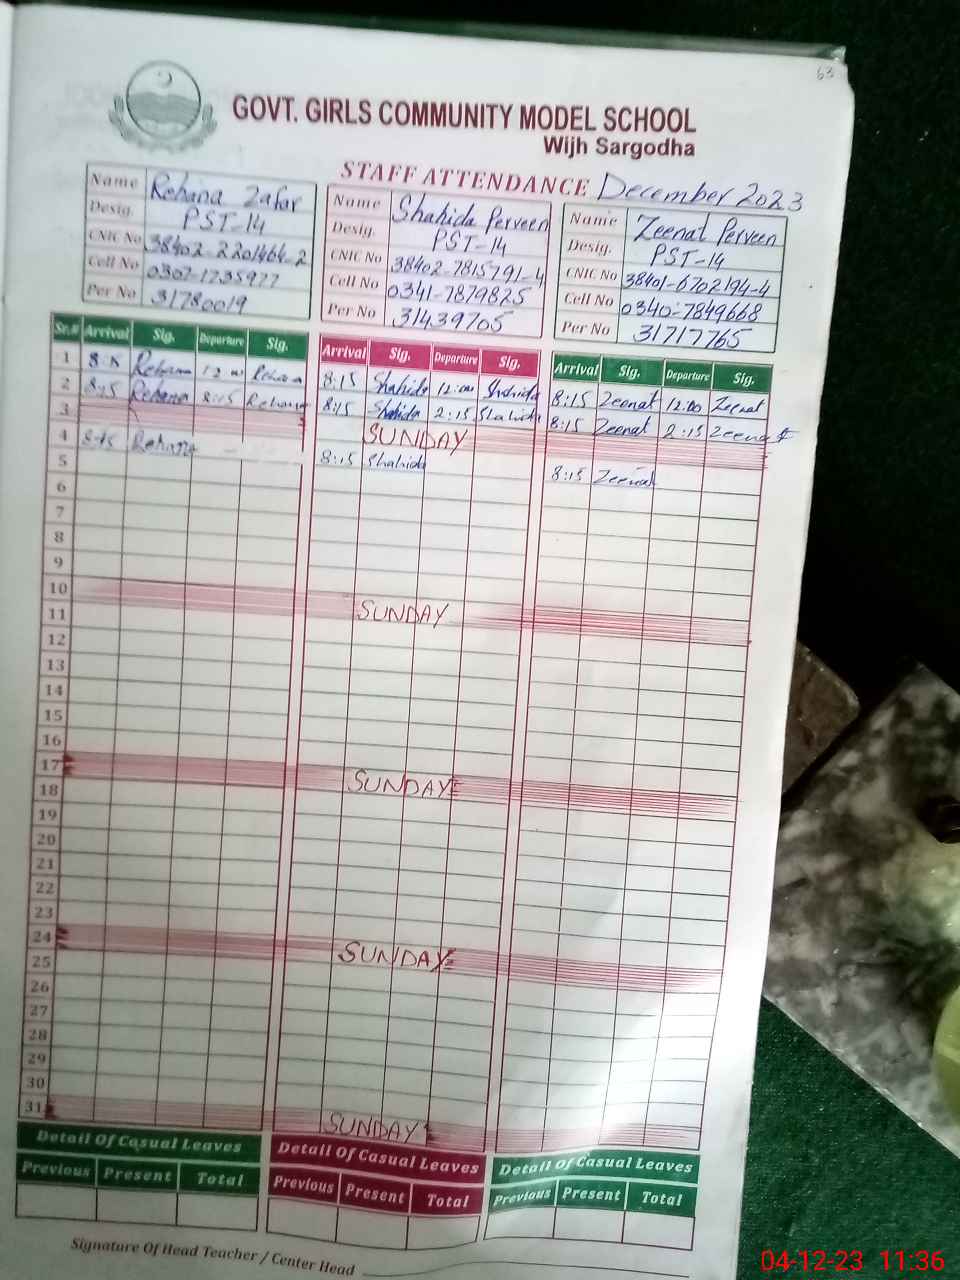 63
GOVT. GIRLS COMMUNITY MODEL SCHOOL
Wijh Sargodha
STAFF ATTENDANCE December 2023
Name Rehana Zafar
Desig. PST-14
CNIC No 38402-2201464-2
Cell No 0307-1235977
Per No 31780019
Name Shahida Perveen
Desig. PST-14
CNIC No 38402-7815791-4
Cell No 0341-7879825
Per No 31439705
Name Zeenat Perveen
Desig. PST-14
CNIC No 38401-6702194-4
Cell No 0340-7849668
Per No 31717765
Sr.# Arrival Sig. Departure Sig. Arrival Sig. Departure Sig. Arrival Sig. Departure Sig.
1 Rehana 12:00 Rehana 8:15 Shahida 12:00 Shahida 8:15 Zeenat 12:00 Zeenat
2 8:15 Rehana Rehana 8:15 Shahida 2:15 Shahida 8:15 Zeenat 2:15 Zeenat
3 SUNDAY
4 8:15 Rehana 8:15 Shahida 8:15 Zeenat
5
6
7
8
9
10 SUNDAY
11
12
13
14
15
16
17 SUNDAY
18
19
20
21
22
23
24 SUNDAY
25
26
27
28
29
30
31 SUNDAY
Detail Of Casual Leaves Detail Of Casual Leaves Detail Of Casual Leaves
Previous Present Total Previous Present Total Previous Present Total
Signature Of Head Teacher / Center Head
04-12-23 11:36